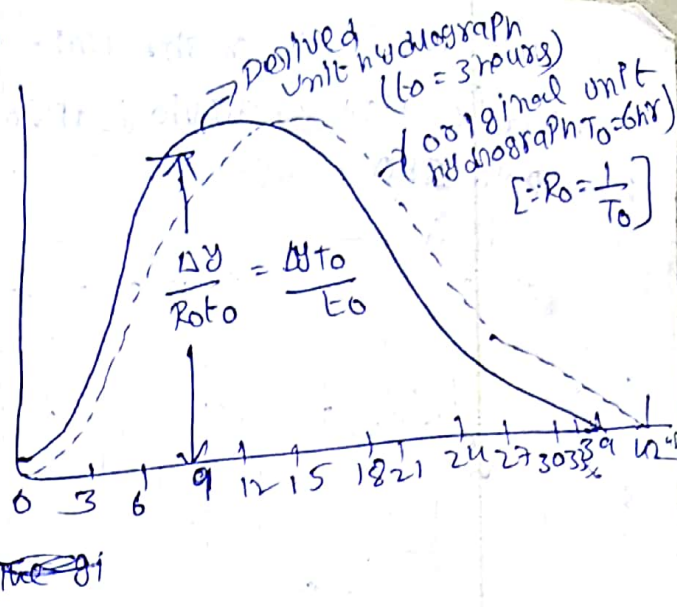 Derived
unit hydrograph
(to = 3 hours)
original unit
hydrograph To=6hr)
[∵Ro = 1/To]
Δy/Roto = ΔyTo/to
0 3 6 9 12 15 18 21 24 27 30 33 39 42
The gi